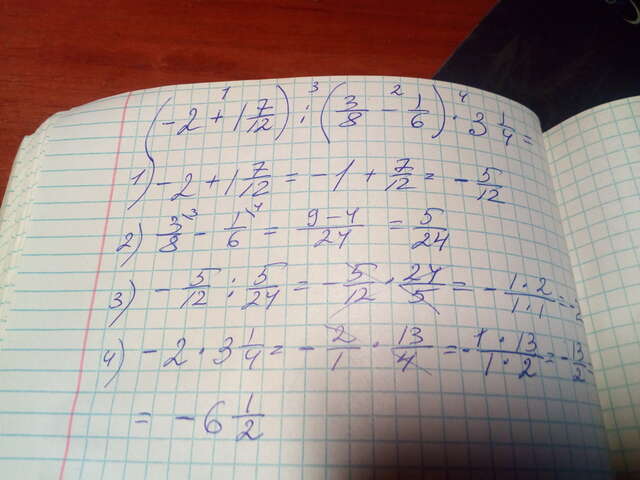 (-2 + 1 7/12) : (3/8 - 1/6) · 3 1/4 =
1) -2 + 1 7/12 = -1 + 7/12 = - 5/12
2) 3/8 - 1/6 = 9-4/24 = 5/24
3) - 5/12 : 5/24 = - 5/12 · 24/5 = - 1·2/1·1 = -2
4) -2 · 3 1/4 = - 2/1 · 13/4 = - 1·13/1·2 = - 13/2 =
= -6 1/2